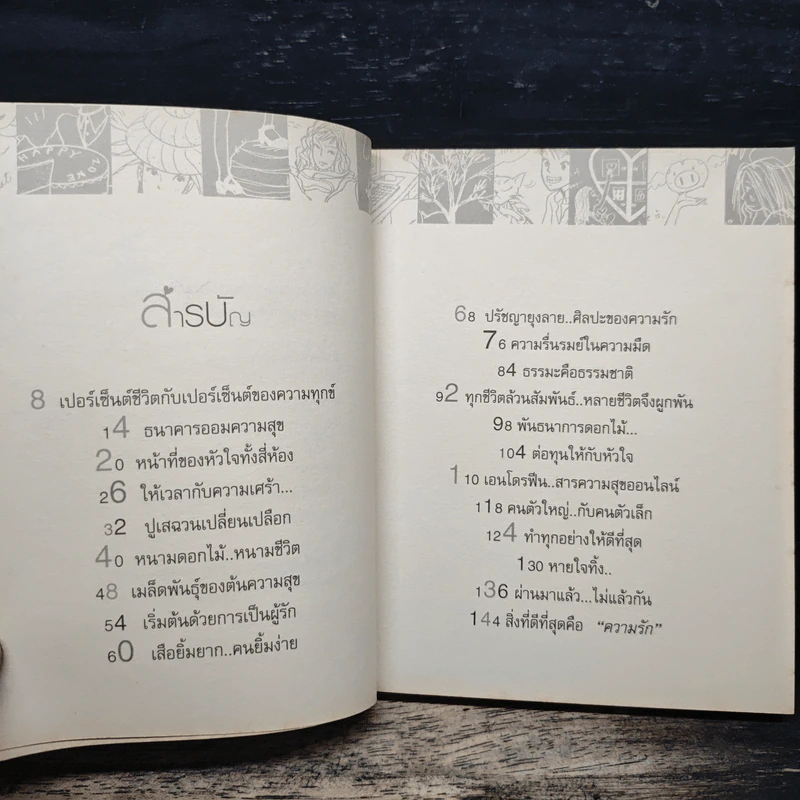 HAPPY TOKE
สารบัญ
8 เปอร์เซ็นต์ชีวิตกับเปอร์เซ็นต์ของความทุกข์
14 ธนาคารออมความสุข
20 หน้าที่ของหัวใจทั้งสี่ห้อง
26 ให้เวลากับความเศร้า...
32 ปูเสฉวนเปลี่ยนเปลือก
40 หนามดอกไม้..หนามชีวิต
48 เมล็ดพันธุ์ของต้นความสุข
54 เริ่มต้นด้วยการเป็นผู้รัก
60 เสือยิ้มยาก..คนยิ้มง่าย
68 ปรัชญายุงลาย..ศิลปะของความรัก
76 ความรื่นรมย์ในความมืด
84 ธรรมะคือธรรมชาติ
92 ทุกชีวิตล้วนสัมพันธ์..หลายชีวิตจึงผูกพัน
98 พันธนาการดอกไม้...
104 ต่อทุนให้กับหัวใจ
110 เอนโดรฟีน..สารความสุขออนไลน์
118 คนตัวใหญ่..กับคนตัวเล็ก
124 ทำทุกอย่างให้ดีที่สุด
130 หายใจทิ้ง..
136 ผ่านมาแล้ว...ไม่แล้วกัน
144 สิ่งที่ดีที่สุดคือ "ความรัก"